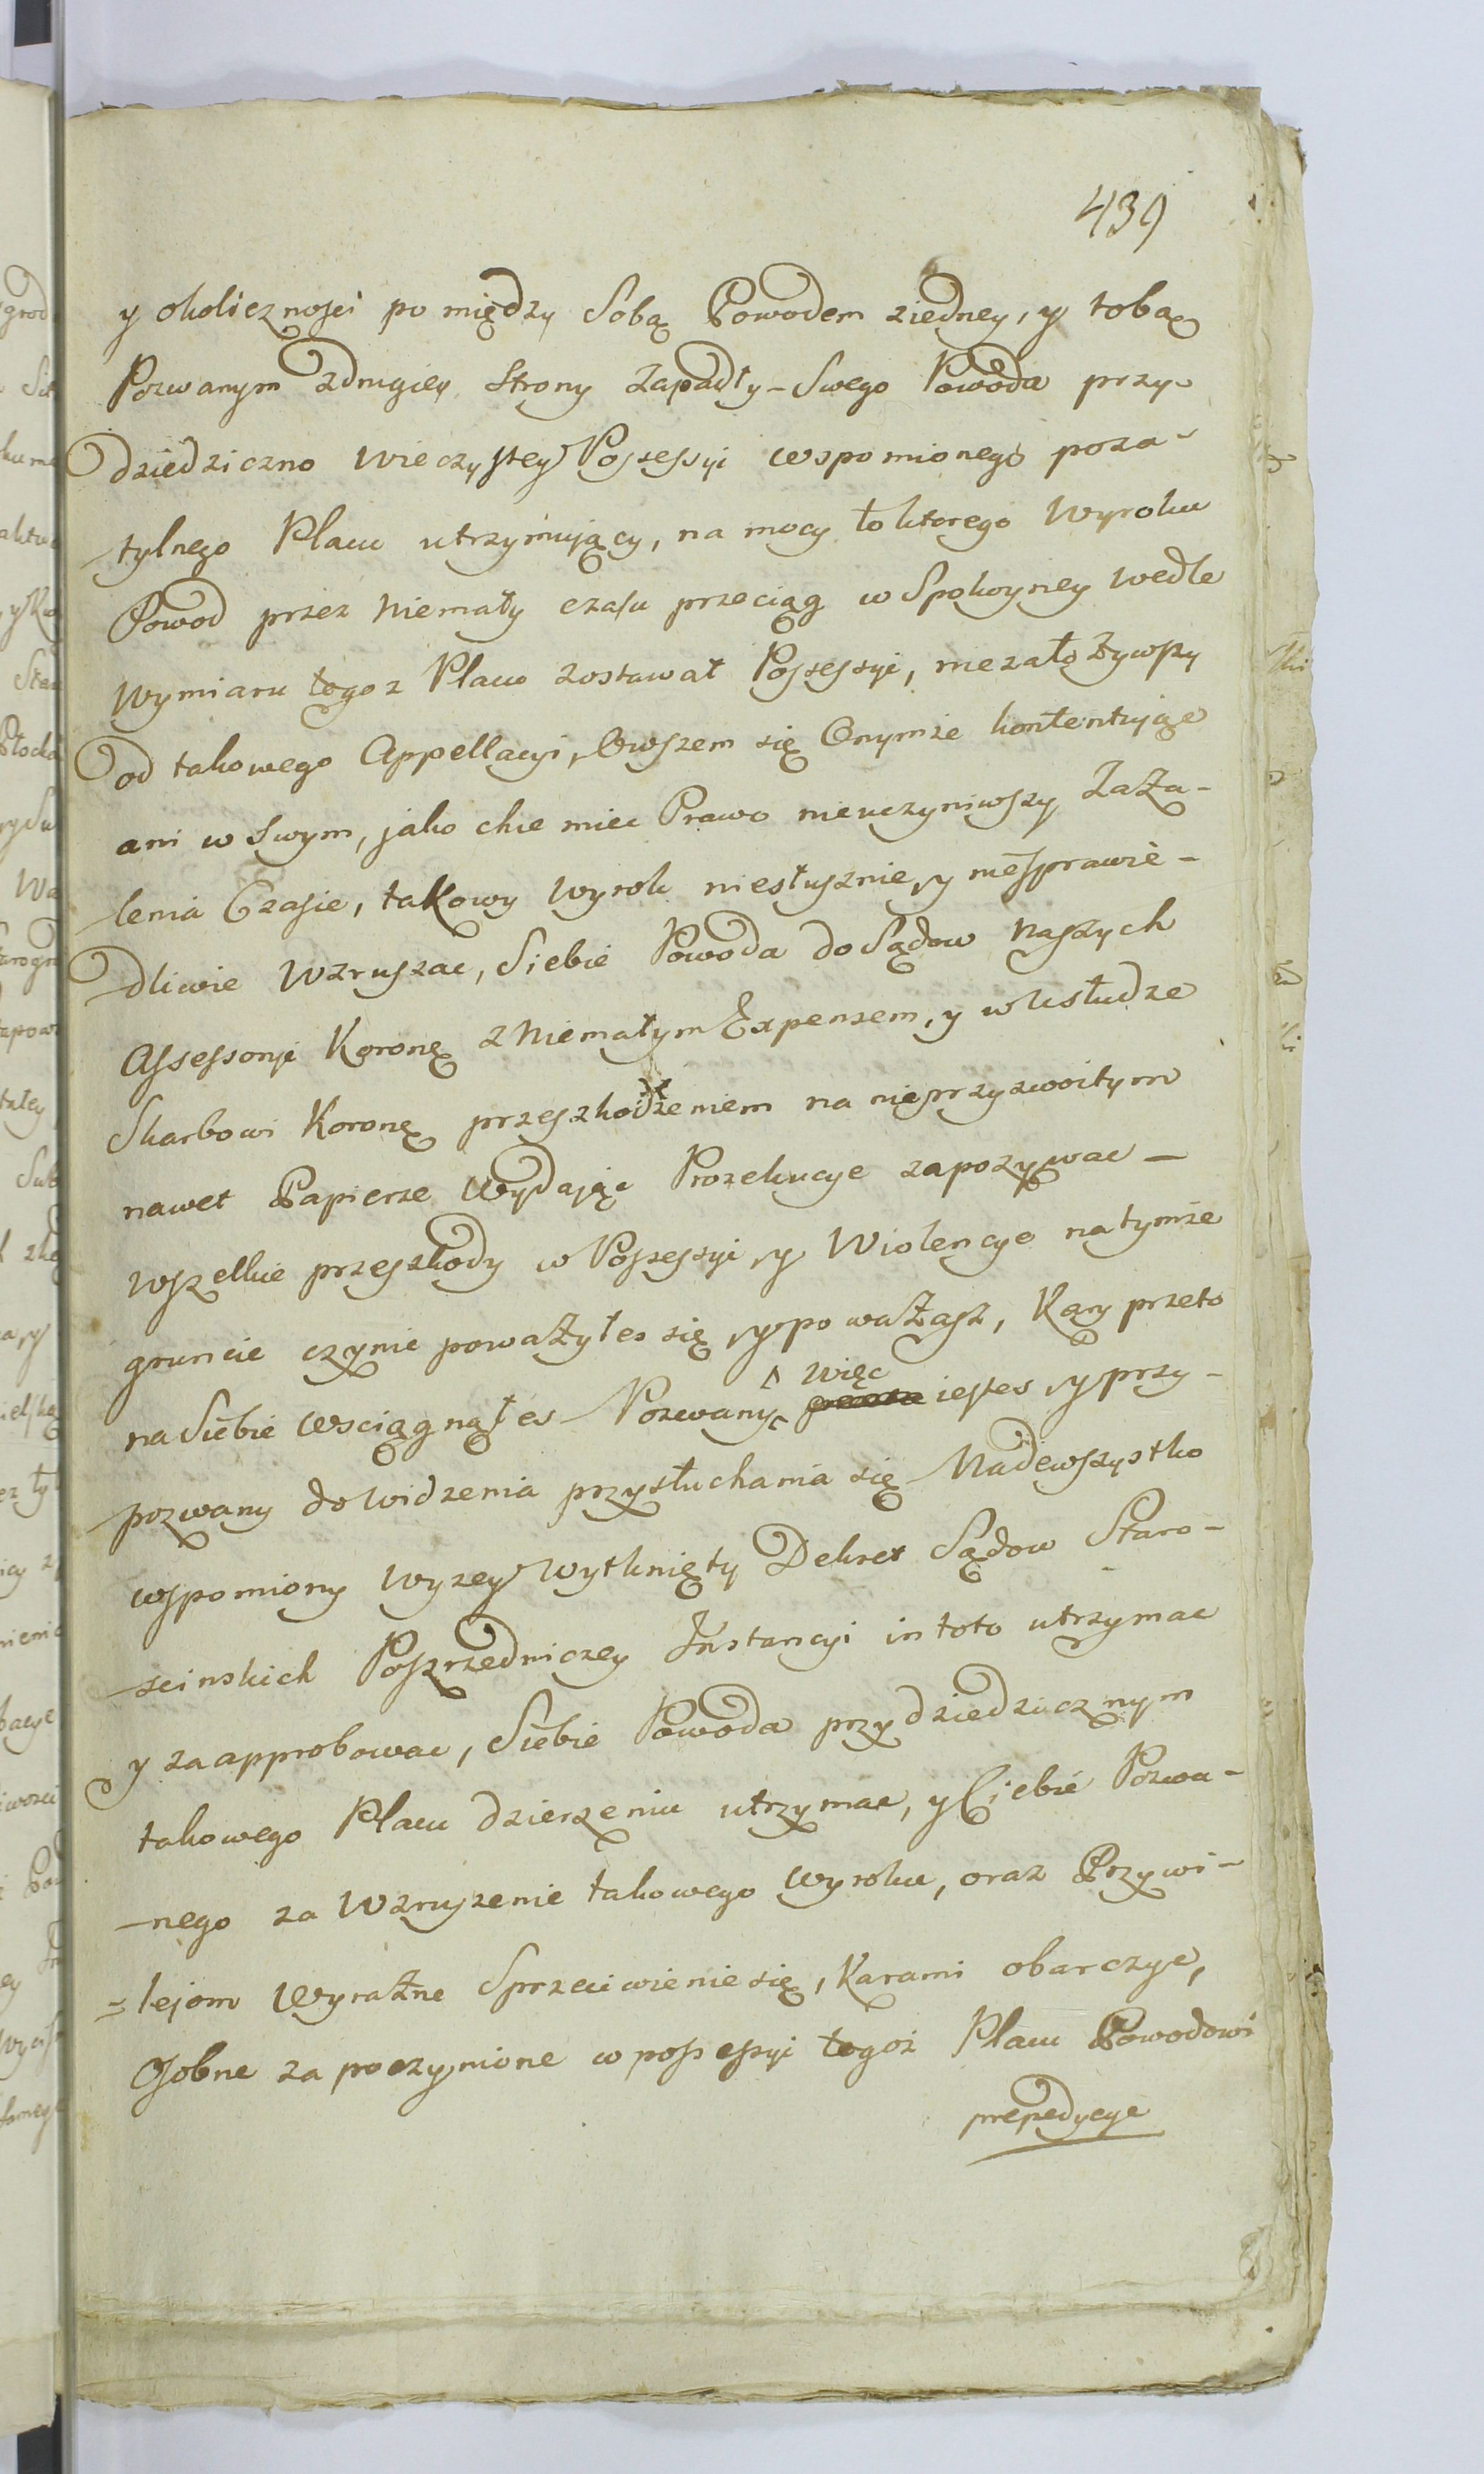 439
y okoliczności po między Sobą Powodem ziedney, y tobą
Pozwanym zdrugiey Strony Zapadły - Swego Powoda przy
dziedziczno wieczystey Possessyi wspomionego poza-
tylnego Placu utrzymujący, na mocy toktorego Wyroku
Powod przez Niemały czasu przeciąg w Spokoyney Wedle
Wymiaru tegoz Placu zostawał Possessyi, niezałożywszy
od takowego Appellacyi, Owszem się Onymże kontentując
ani w Swym, jako chce miec Prawo nieuczyniwszy Zaża-
lenia Czasie, takowy Wyrok niesłusznie, y niesprawie-
dliwie Wzruszac, Siebie Powoda do Sądow Naszych
Assessoryi Koronę z Niemałym Expensem, y w Usłudze
Skarbowi Koronę przeszkodzeniem na nieprzyzwoitym
nawet Papierze Wydając Prozekucye zapozywac -
Wszelkie przeszkody w Possessyi, y Wiolencye natymże
gruncie czynic poważyłes się, y poważasz, Kary przeto
na Siebie wsciągnąłes - Pozwany więc iestes y przy-
pozwany do Widzenia przysłuchania się - Nadewszystko
wspomiony Wyzey Wytknięty Dekret Sądow Staro-
scinskich Poszrzedniczey Instancyi in toto utrzymac
y zaapprobowac, Siebie Powoda przy dziedzicznym
takowego Placu dzierzeniu utrzymac, y Ciebie Pozwa-
-nego za Wzruszenie takowego Wyroku, oraz Przywi-
=lejom Wyrażne Sprzeciwienie się, Karami obarczyc,
Osobne za poczynione w possessyi tegoż Placu Powodowi
prepedycye